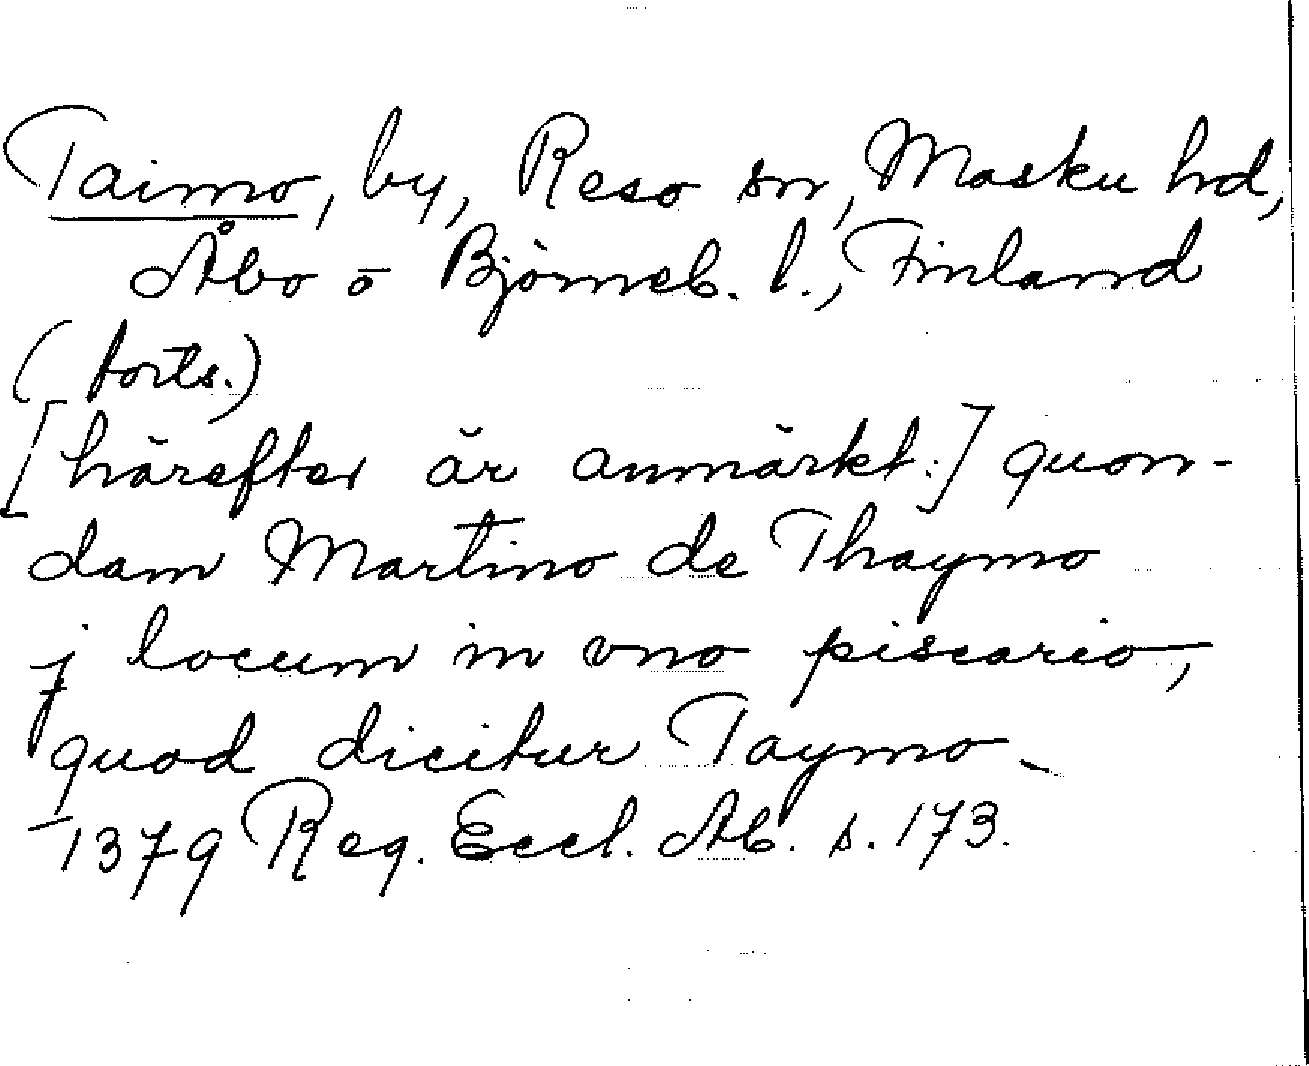 Taimo, by, Reso sn, Masku hd,
Åbo o Björneb. l., Finland
(forts.)
[härefter är anmärkt:] quon-
dam Martino de Thaymo
j locum in vno piscario,
quod dicitur Taymo
1379 Reg. Eccl. Ab. s. 173.